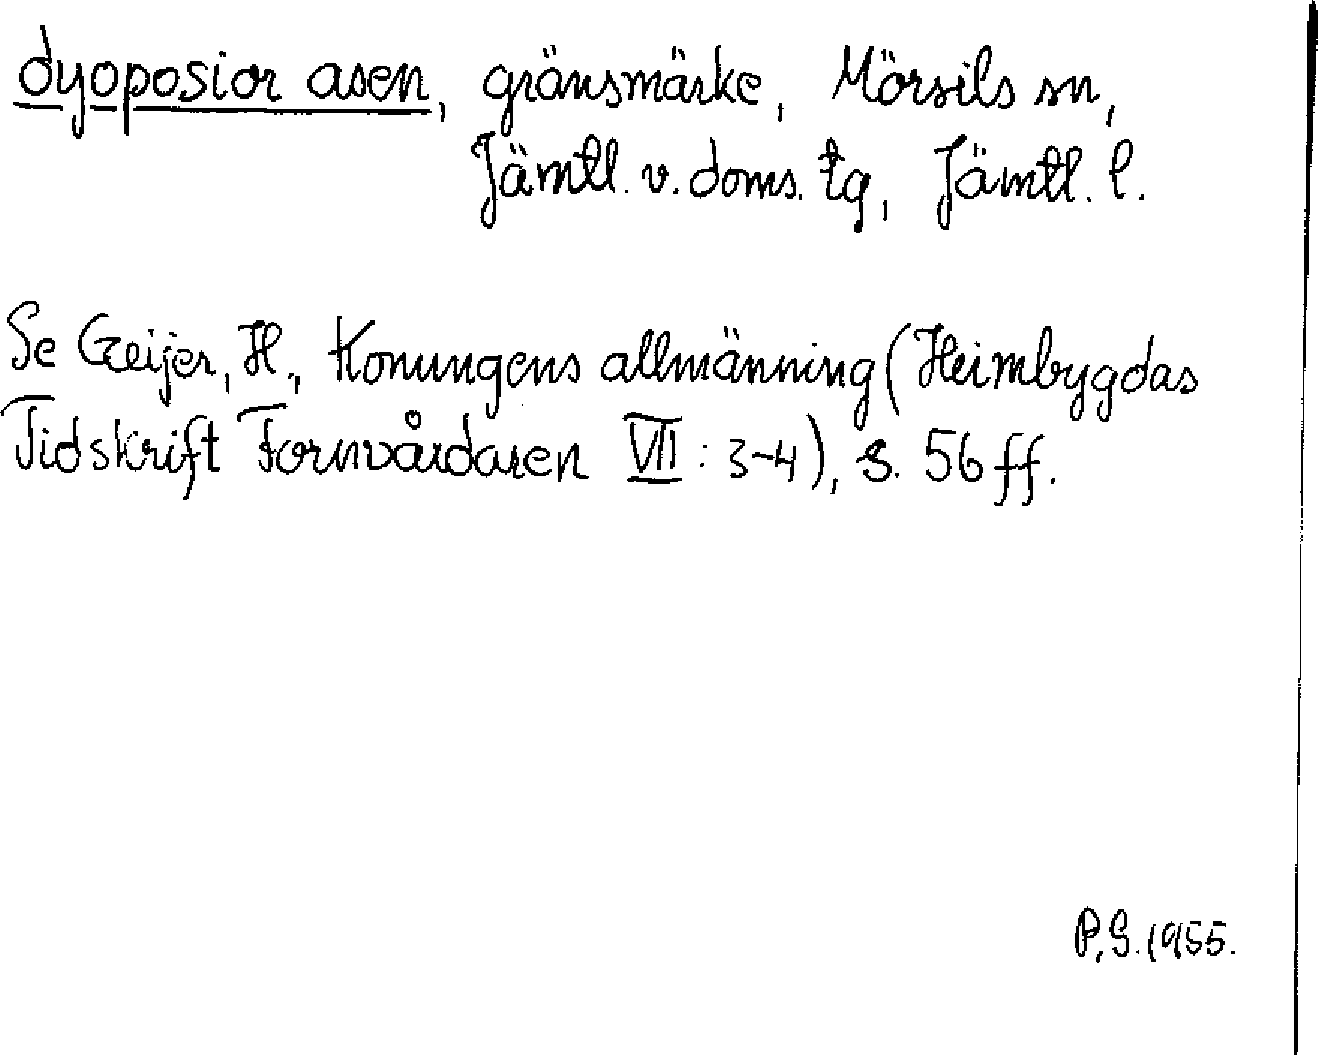 dyoposior asen, gränsmärke, Mörsils sn,
Jämtl. v. doms. tg, Jämtl. l.
Se Geijer, H., Konungens allmänning (Heimbygdas
Tidskrift Fornvårdaren VII : 3-4), s. 56 ff.
P.S. 1955.